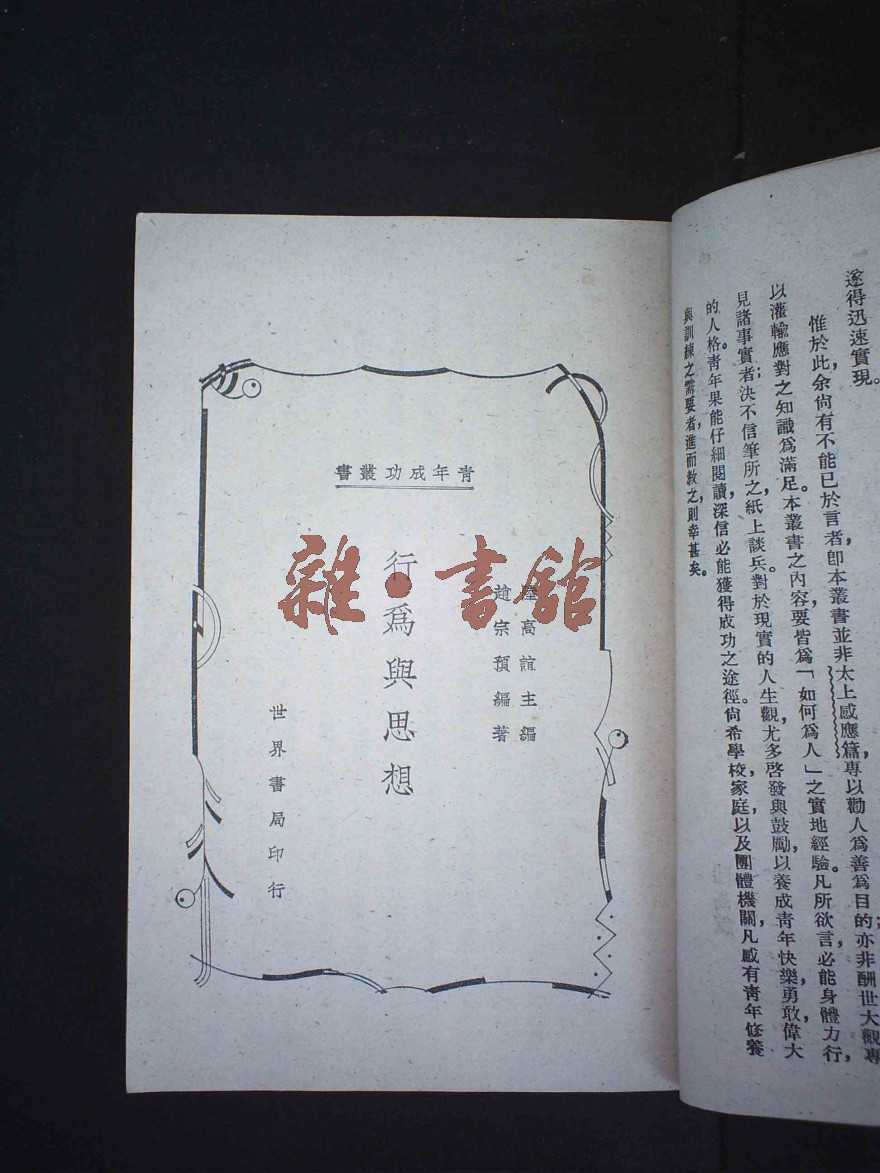 遂得迅速實現。
惟於此，余尙有不能已於言者，卽本叢書並非太上感應篇，專以勸人爲善爲目的；亦非酬世大觀，專
以灌輸應對之知識爲滿足。本叢書之內容，要皆爲「如何爲人」之實地經驗。凡所欲言，必能身體力行，
見諸事實者；決不信筆所之，紙上談兵。對於現實的人生觀，尤多啓發與鼓勵，以養成靑年快樂，勇敢，偉大
的人格。靑年果能仔細閱讀，深信必能獲得成功之途徑。尙希學校，家庭，以及團體機關，凡感有靑年修養
與訓練之需要者，進而敎之，則幸甚矣。
靑年成功叢書
陸高誼主編
趙宗預編著
行爲與思想
世界書局印行
雜·書館